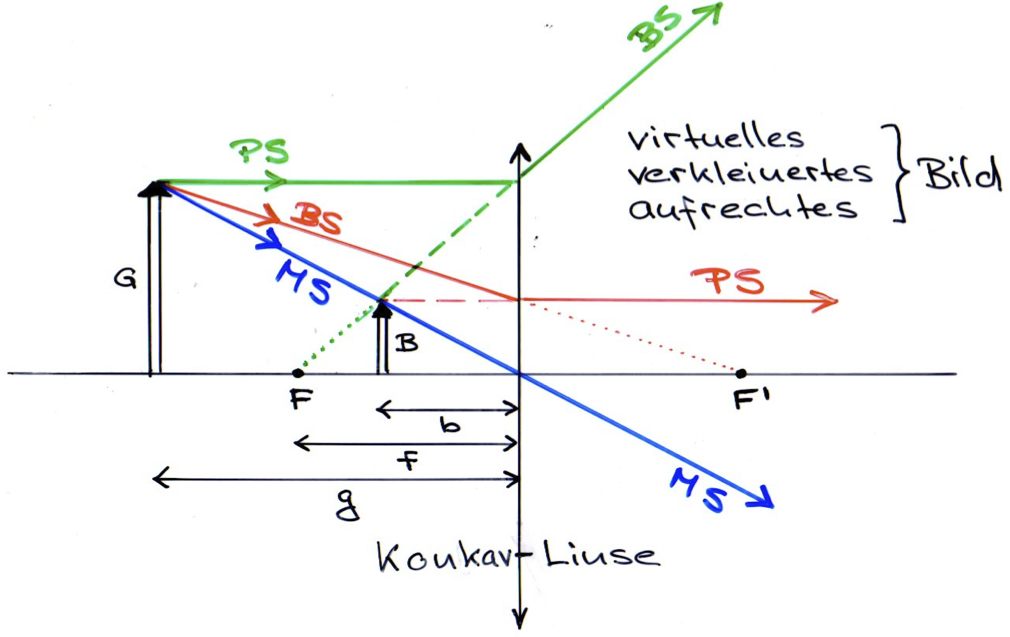 BS
PS
virtuelles
verkleinertes
aufrechtes
Bild
BS
G
MS
PS
B
F
F'
b
f
g
MS
Konkav-Linse